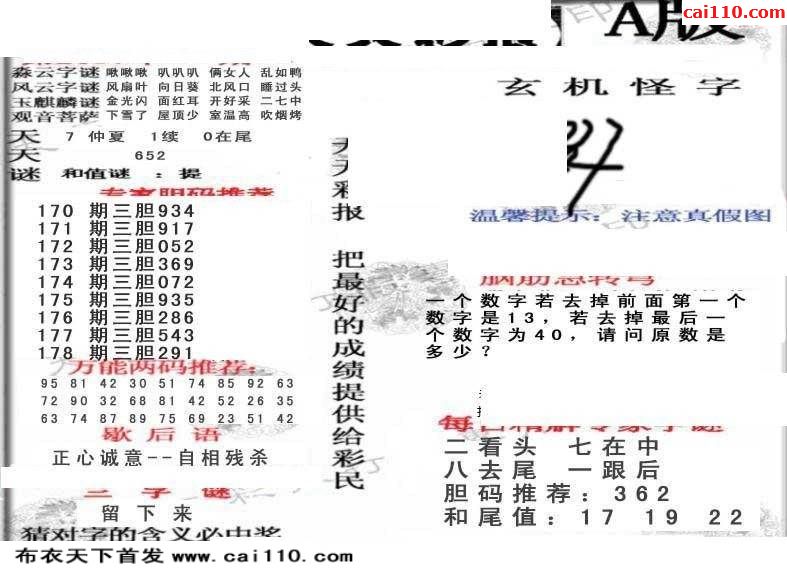 cai110.com
A版
淼云字谜 啾啾啾 叭叭叭 俩女人 乱如鸭
风云字谜 风扇叶 向日葵 北风口 睡过头
玉麒麟谜 金光闪 面红耳 开好采 二七中
观音菩萨 下雪了 屋顶少 室温高 吹烟烤
天 7 仲夏 1续 0在尾
天 652
谜 和值谜 : 提
专家胆码推荐
170 期三胆934
171 期三胆917
172 期三胆052
173 期三胆369
174 期三胆072
175 期三胆935
176 期三胆286
177 期三胆543
178 期三胆291
万能两码推荐:
95 81 42 30 51 74 85 92 63
72 90 32 68 81 42 52 26 35
63 74 87 89 75 69 23 51 42
歇后语
正心诚意--自相残杀
三字谜
留下来
猜对字的含义必中奖
布衣天下首发 www.cai110.com
天天彩报 把最好的成绩提供给彩民
玄机怪字
温馨提示: 注意真假图
脑筋急转弯
一个数字若去掉前面第一个
数字是13，若去掉最后一
个数字为40，请问原数是
多少？
每日精解专家字谜
二看头 七在中
八去尾 一跟后
胆码推荐: 362
和尾值: 17 19 22